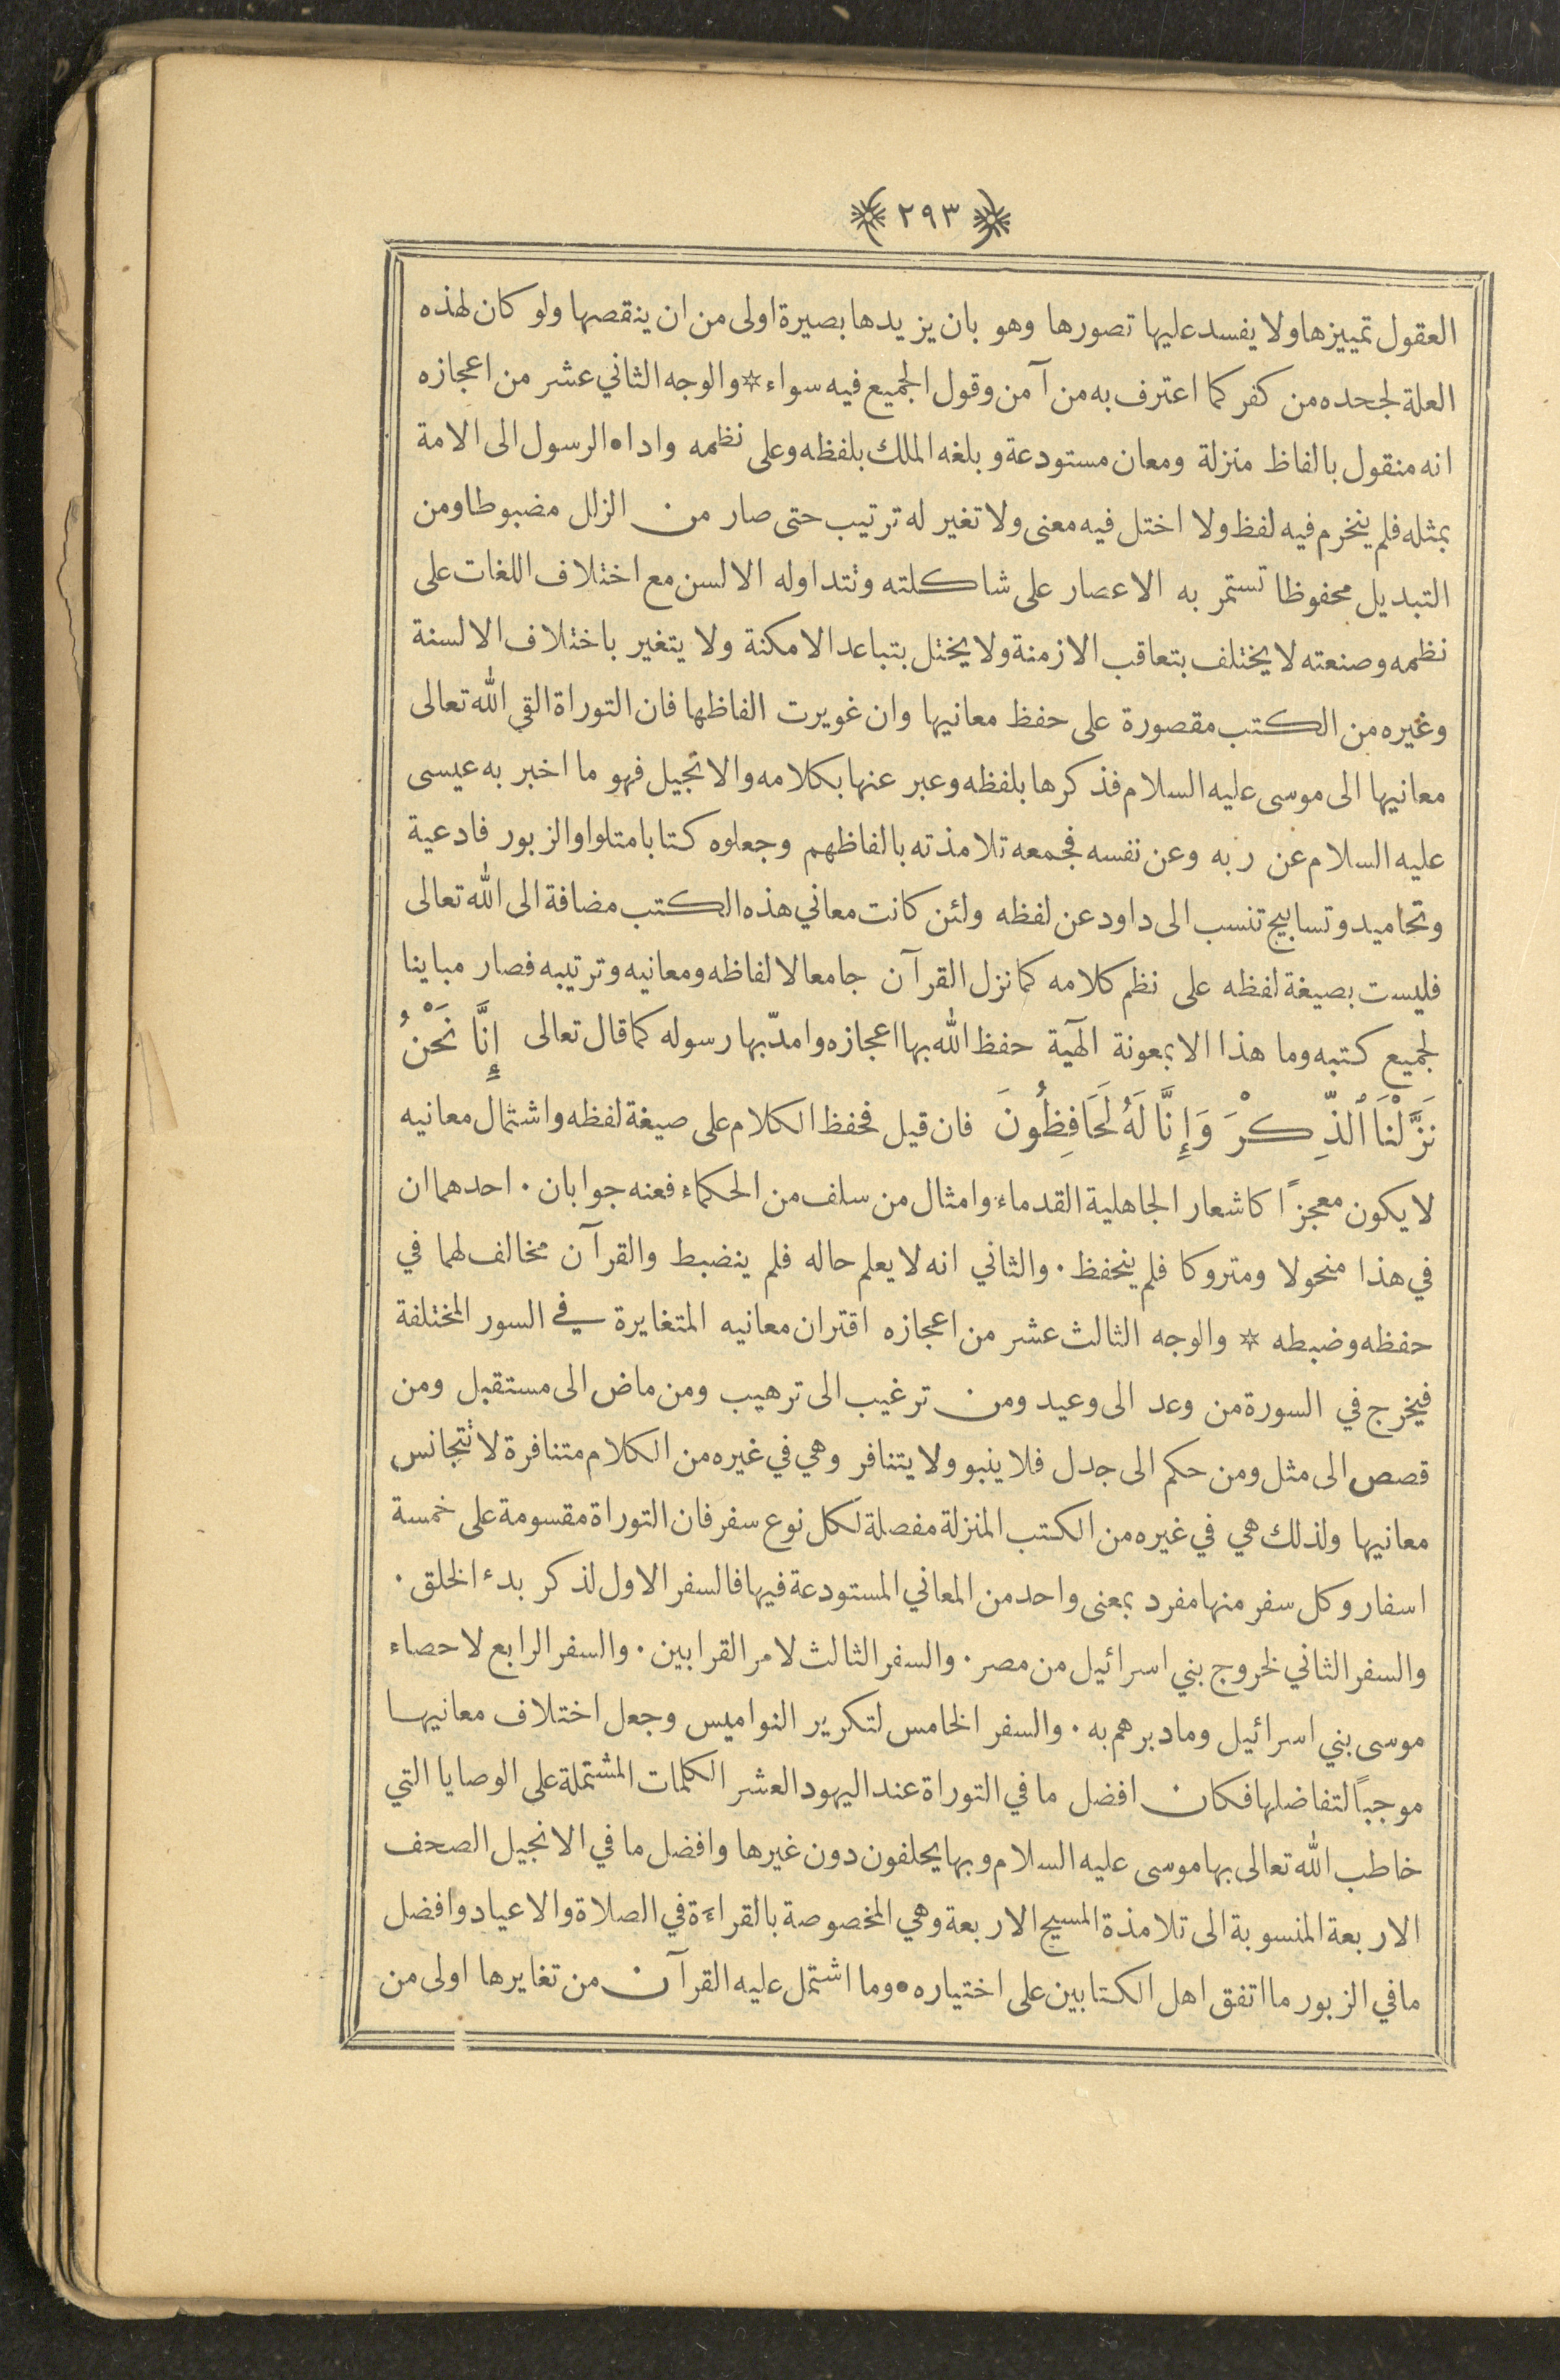 ٢٩٣
العقول تمييزها ولا يفسد عليها تصورها وهو بان يزيدها بصيرة اولى من ان ينقصها ولو كان لهذه
العلة لجحده من كفر كما اعترف به من آمن وقول الجميع فيه سواء * والوجه الثاني عشر من اعجازه
انه منقول بالفاظ منزلة ومعان مستودعة وبلغه الملك بلفظه وعلى نظمه واداه الرسول الى الامة
بمثله فلم ينخرم فيه لفظ ولا اختل فيه معنى ولا تغير له ترتيب حتى صار من الزلل مضبوطا ومن
التبديل محفوظا تستمر به الاعصار على شاكلته وتتداوله الالسن مع اختلاف اللغات على
نظمه وصنعته لا يختلف بتعاقب الازمنة ولا يختل بتباعد الامكنة ولا يتغير باختلاف الالسنة
وغيره من الكتب مقصورة على حفظ معانيها وان غويرت الفاظها فان التوراة القى الله تعالى
معانيها الى موسى عليه السلام فذكرها بلفظه وعبر عنها بكلامه والانجيل فهو ما اخبر به عيسى
عليه السلام عن ربه وعن نفسه فجمعه تلامذته بالفاظهم وجعلوه كتابا متلوا والزبور فادعية
وتحاميد وتسابيح تنسب الى داود عن لفظه ولئن كانت معاني هذه الكتب مضافة الى الله تعالى
فليست بصيغة لفظه على نظم كلامه كما نزل القرآن جامعا لالفاظه ومعانيه وترتيبه فصار مباينا
لجميع كتبه وما هذا الا بمعونة آلهية حفظ الله بها اعجازه وامدّ بها رسوله كما قال تعالى إِنَّا نَحْنُ
نَزَّلْنَا ٱلذِّكْرَ وَإِنَّا لَهُ لَحَافِظُونَ فان قيل فحفظ الكلام على صيغة لفظه واشتمال معانيه
لا يكون معجزًا كاشعار الجاهلية القدماء وامثال من سلف من الحكماء فعنه جوابان . احدهما ان
في هذا منحولا ومتروكا فلم ينحفظ . والثاني انه لا يعلم حاله فلم ينضبط والقرآن مخالف لهما في
حفظه وضبطه * والوجه الثالث عشر من اعجازه اقتران معانيه المتغايرة في السور المختلفة
فيخرج في السورة من وعد الى وعيد ومن ترغيب الى ترهيب ومن ماض الى مستقبل ومن
قصص الى مثل ومن حكم الى جدل فلا ينبو ولا يتنافر وهي في غيره من الكلام متنافرة لا تتجانس
معانيها ولذلك هي في غيره من الكتب المنزلة مفصلة لكل نوع سفر فان التوراة مقسومة على خمسة
اسفار وكل سفر منها مفرد بمعنى واحد من المعاني المستودعة فيها فالسفر الاول لذكر بدء الخلق .
والسفر الثاني لخروج بني اسرائيل من مصر . والسفر الثالث لامر القرابين . والسفر الرابع لاحصاء
موسى بني اسرائيل وما دبرهم به . والسفر الخامس لتكرير النواميس وجعل اختلاف معانيها
موجبًا لتفاضلها فكان افضل ما في التوراة عند اليهود العشر الكلمات المشتملة على الوصايا التي
خاطب الله تعالى بها موسى عليه السلام وبها يحلفون دون غيرها وافضل ما في الانجيل الصحف
الاربعة المنسوبة الى تلامذة المسيح الاربعة وهي المخصوصة بالقراءة في الصلاة والاعياد وافضل
ما في الزبور ما اتفق اهل الكتابين على اختياره . وما اشتمل عليه القرآن من تغايرها اولى من